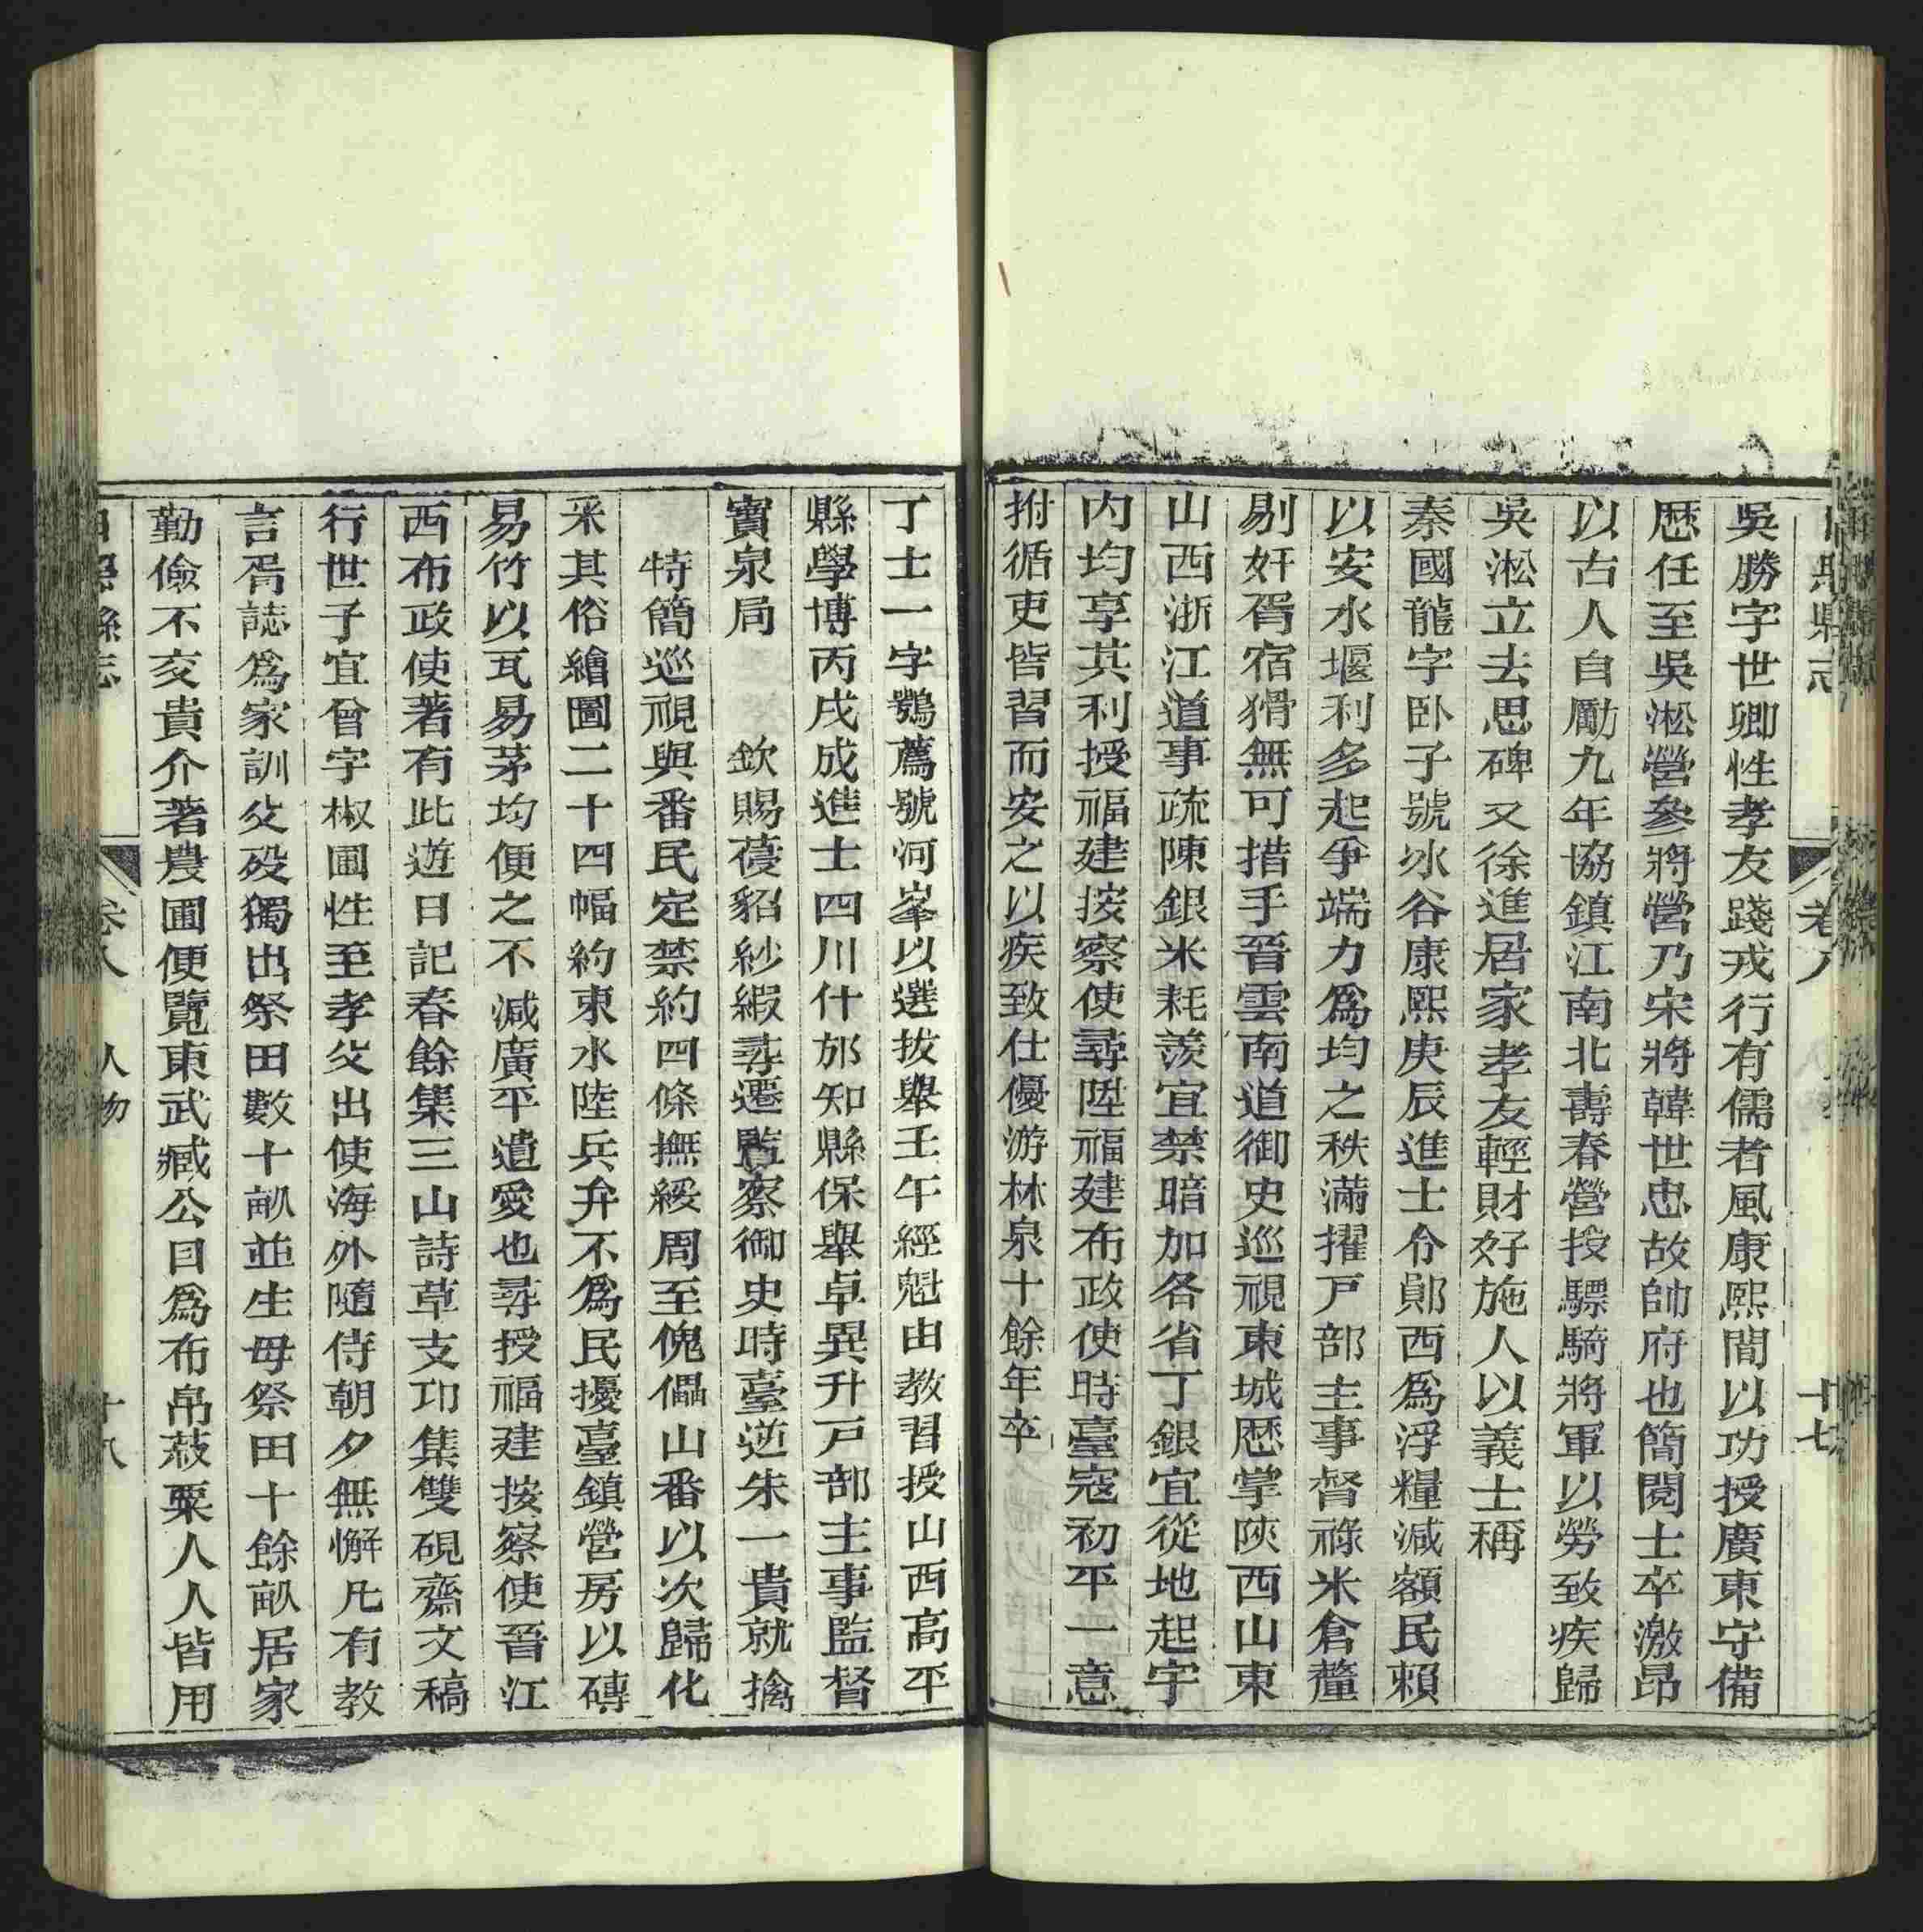 日照縣志
卷八
十七
吳勝字世卿性孝友踐戎行有儒者風康熙間以功授廣東守備
歷任至吳淞營參將營乃宋將韓世忠故帥府也簡閱士卒激昂
以古人自勵九年協鎮江南北壽春營授驃騎將軍以勞致疾歸
吳淞立去思碑又徐進居家孝友輕財好施人以義士稱
秦國龍字卧子號氷谷康熙庚辰進士令鄖西爲浮糧減額民賴
以安水堰利多起爭端力爲均之秩滿擢戸部主事督祿米倉釐
剔奸胥宿猾無可措手晉雲南道御史巡視東城歷掌陝西山東
山西浙江道事疏陳銀米耗羨宜禁暗加各省丁銀宜從地起宇
内均享其利授福建按察使尋陞福建布政使時臺寇初平一意
拊循吏皆習而安之以疾致仕優游林泉十餘年卒
丁士一字鶚薦號河峯以選拔舉壬午經魁由教習授山西高平
縣學博丙戌成進士四川什邡知縣保舉卓異升戸部主事監督
寶泉局　　欽賜葠貂紗緞尋遷監察御史時臺逆朱一貴就擒
特簡巡視與番民定禁約四條撫綏周至傀儡山番以次歸化
采其俗繪圖二十四幅約束水陸兵弁不爲民擾臺鎮營房以磚
易竹以瓦易茅均便之不減廣平遺愛也尋授福建按察使晉江
西布政使著有此遊日記春餘集三山詩草支邛集雙硯齋文稿
行世子宜曾字椒圃性至孝父出使海外隨侍朝夕無懈凡有教
言胥誌爲家訓父歿獨出祭田數十畝並生母祭田十餘畝居家
勤儉不交貴介著農圃便覽東武臧公目爲布帛菽粟人人皆用
日照縣志
卷八
人物
十八